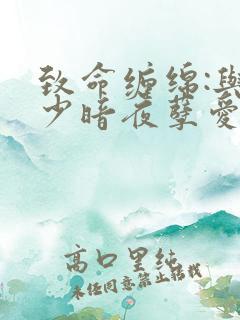 致命缠绵:與
少暗夜孽爱
高口里纯
未经同意禁止转载